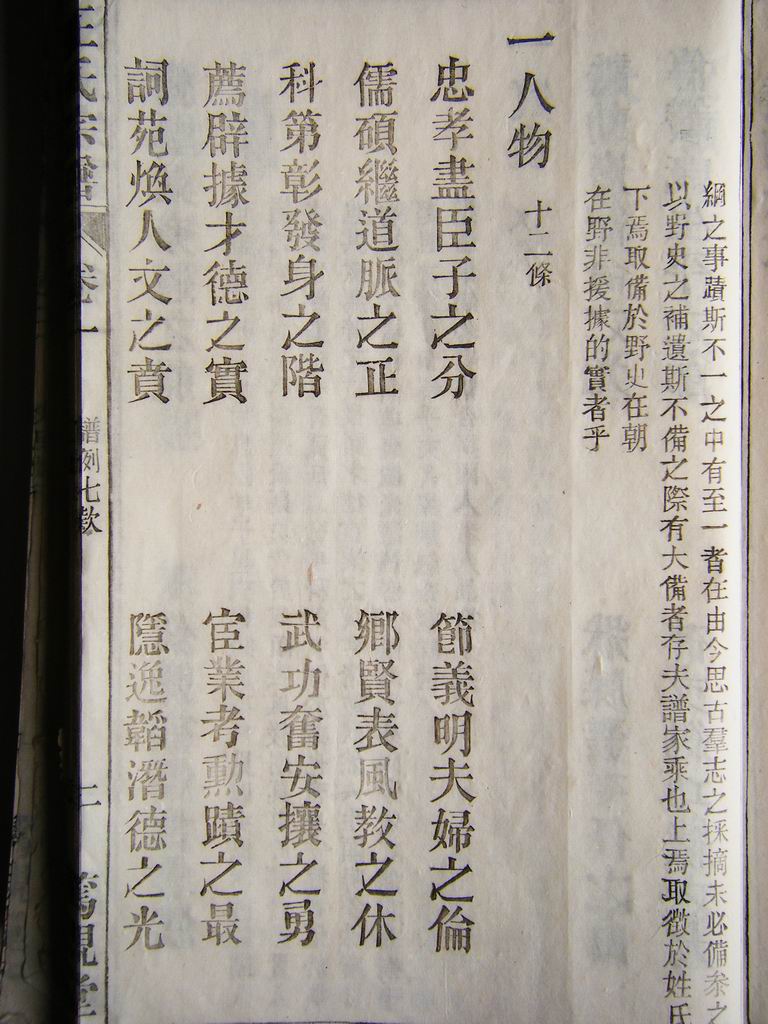 綱之事蹟斯不一之中有至一者在由今思古羣志之採摘未必備叅之
以野史之補遺斯不備之際有大備者存夫譜家乘也上焉取徵於姓氏
下焉取備於野史在朝
在野非援據的實者乎
一人物 十二條
忠孝盡臣子之分 節義明夫婦之倫
儒碩繼道脈之正 鄉賢表風教之休
科第彰發身之階 武功奮安攘之勇
薦辟據才德之實 宦業考勲蹟之最
詞苑煥人文之賁 隱逸韜潛德之光
王氏宗譜 卷一 譜例七款 二